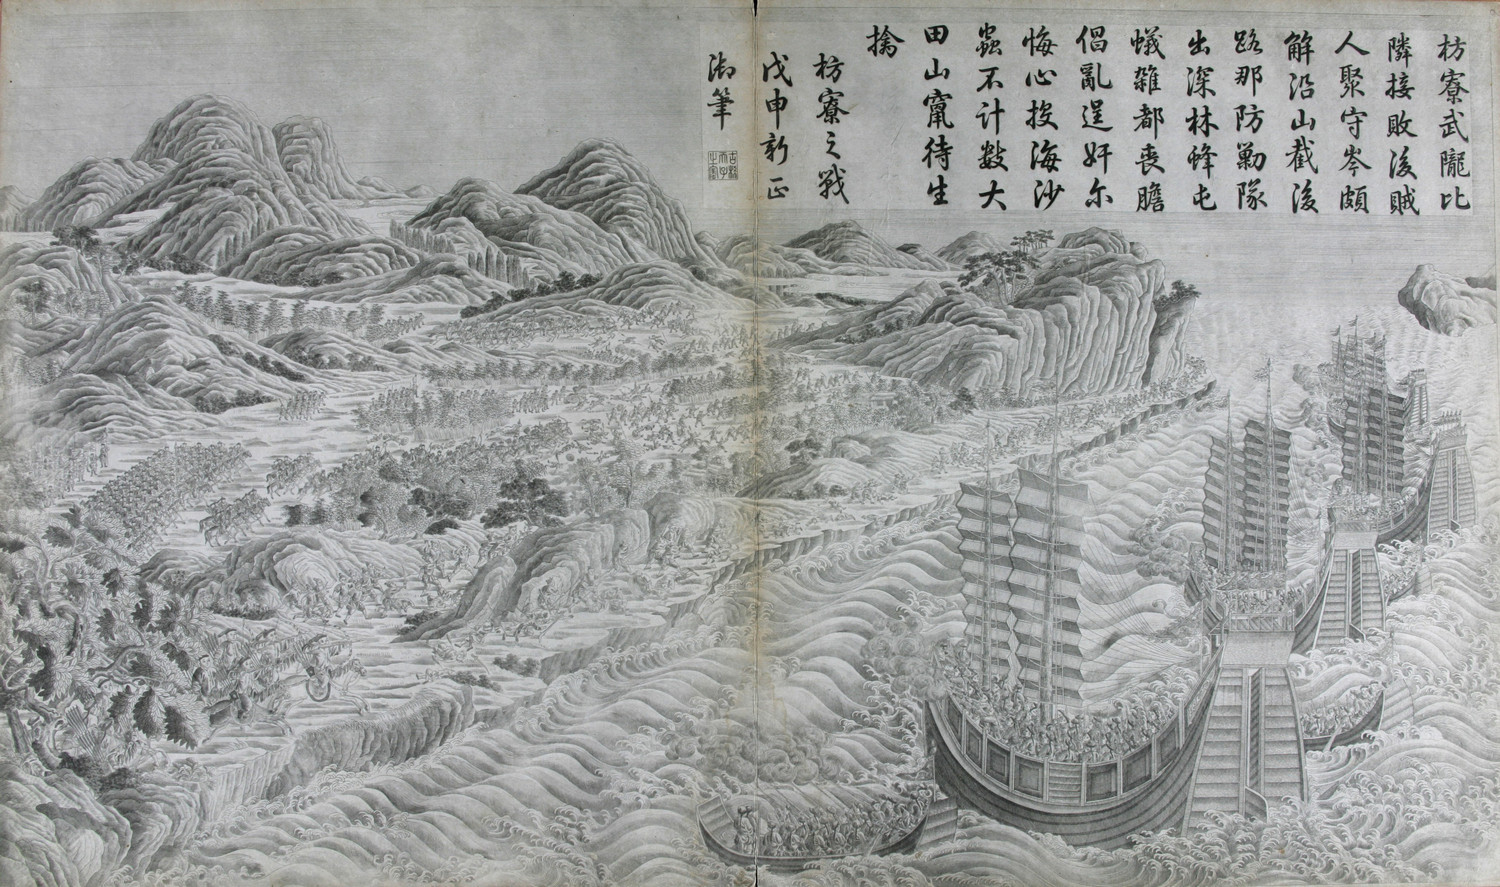 枋寮武隴比
隣接敗後賊
人聚守岑頗
解沿山截後
路那防勦隊
出深林蜂屯
蟻雜都喪膽
倡亂逞奸尔
悔心投海沙
蟲不計數大
田山竄待生
擒
枋寮之戰
戊申新正
御筆